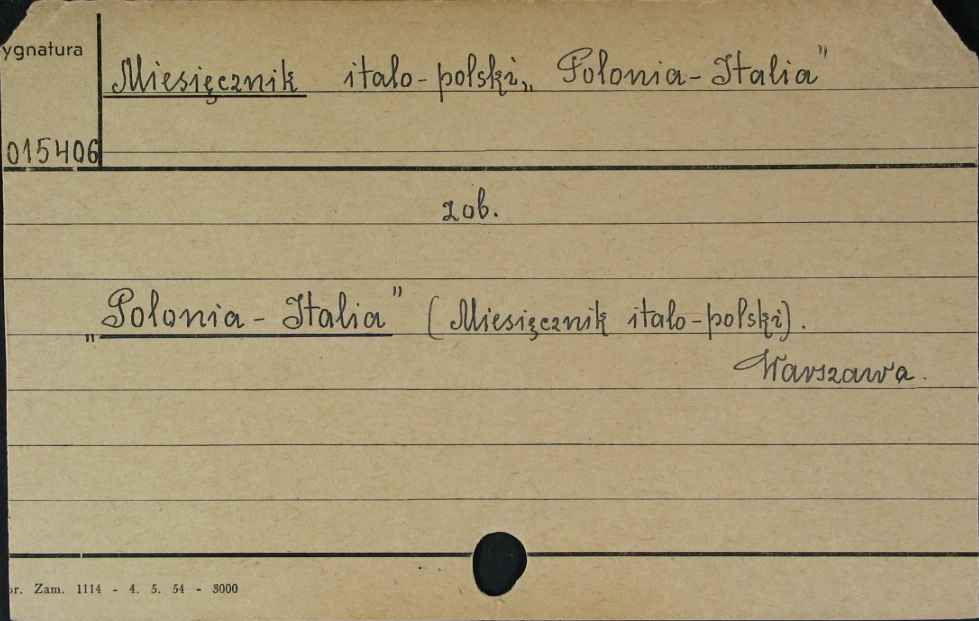 ygnatura
Miesięcznik italo-polski „Polonia-Italia"
015406
zob.
„Polonia - Italia" (Miesięcznik italo-polski).
Warszawa.
or. Zam. 1114 - 4. 5. 54 - 3000